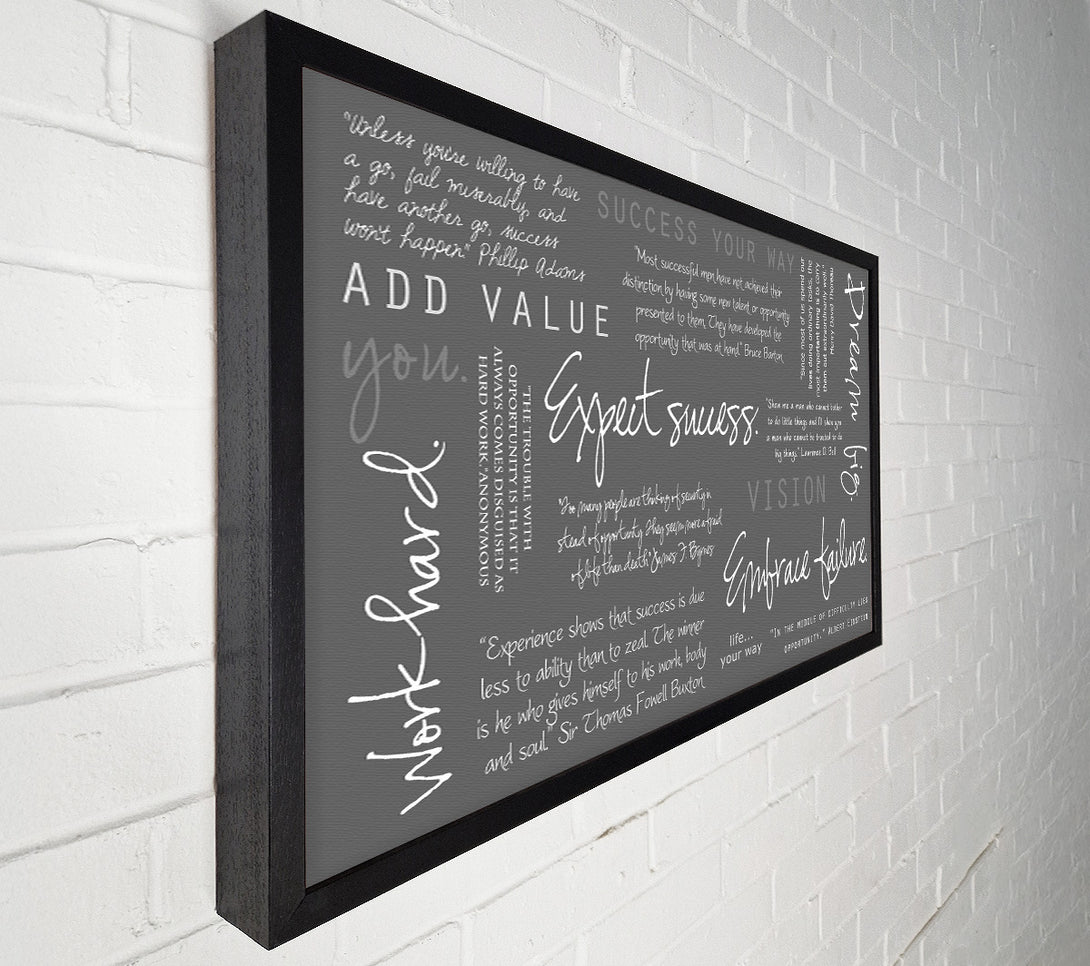 "Unless you're willing to have
a go, fail miserably, and
have another go, success
won't happen." Phillip Adams
SUCCESS YOUR WAY
"Most successful men have not achieved their
distinction by having some new talent or opportunity
presented to them. They have developed the
opportunity that was at hand." Bruce Barton
"Since most of us spend our
lives doing ordinary tasks, the
most important thing is to carry
them out extraordinarily well."
Henry David Thoreau
Dream big.
ADD VALUE
you.
"THE TROUBLE WITH
OPPORTUNITY IS THAT IT
ALWAYS COMES DISGUISED AS
HARD WORK." ANONYMOUS
Expect success.
"Show me a man who cannot bother
to do little things and I'll show you
a man who cannot be trusted to do
big things." Lawrence D. Bell
Work hard.
"Too many people are thinking of security in
stead of opportunity. They seem more afraid
of life than death" James F Byrnes
VISION
Embrace failure.
"Experience shows that success is due
less to ability than to zeal. The winner
is he who gives himself to his work, body
and soul." Sir Thomas Fowell Buxton
life...
your way
"IN THE MIDDLE OF DIFFICULTY LIES
OPPORTUNITY." ALBERT EINSTEIN